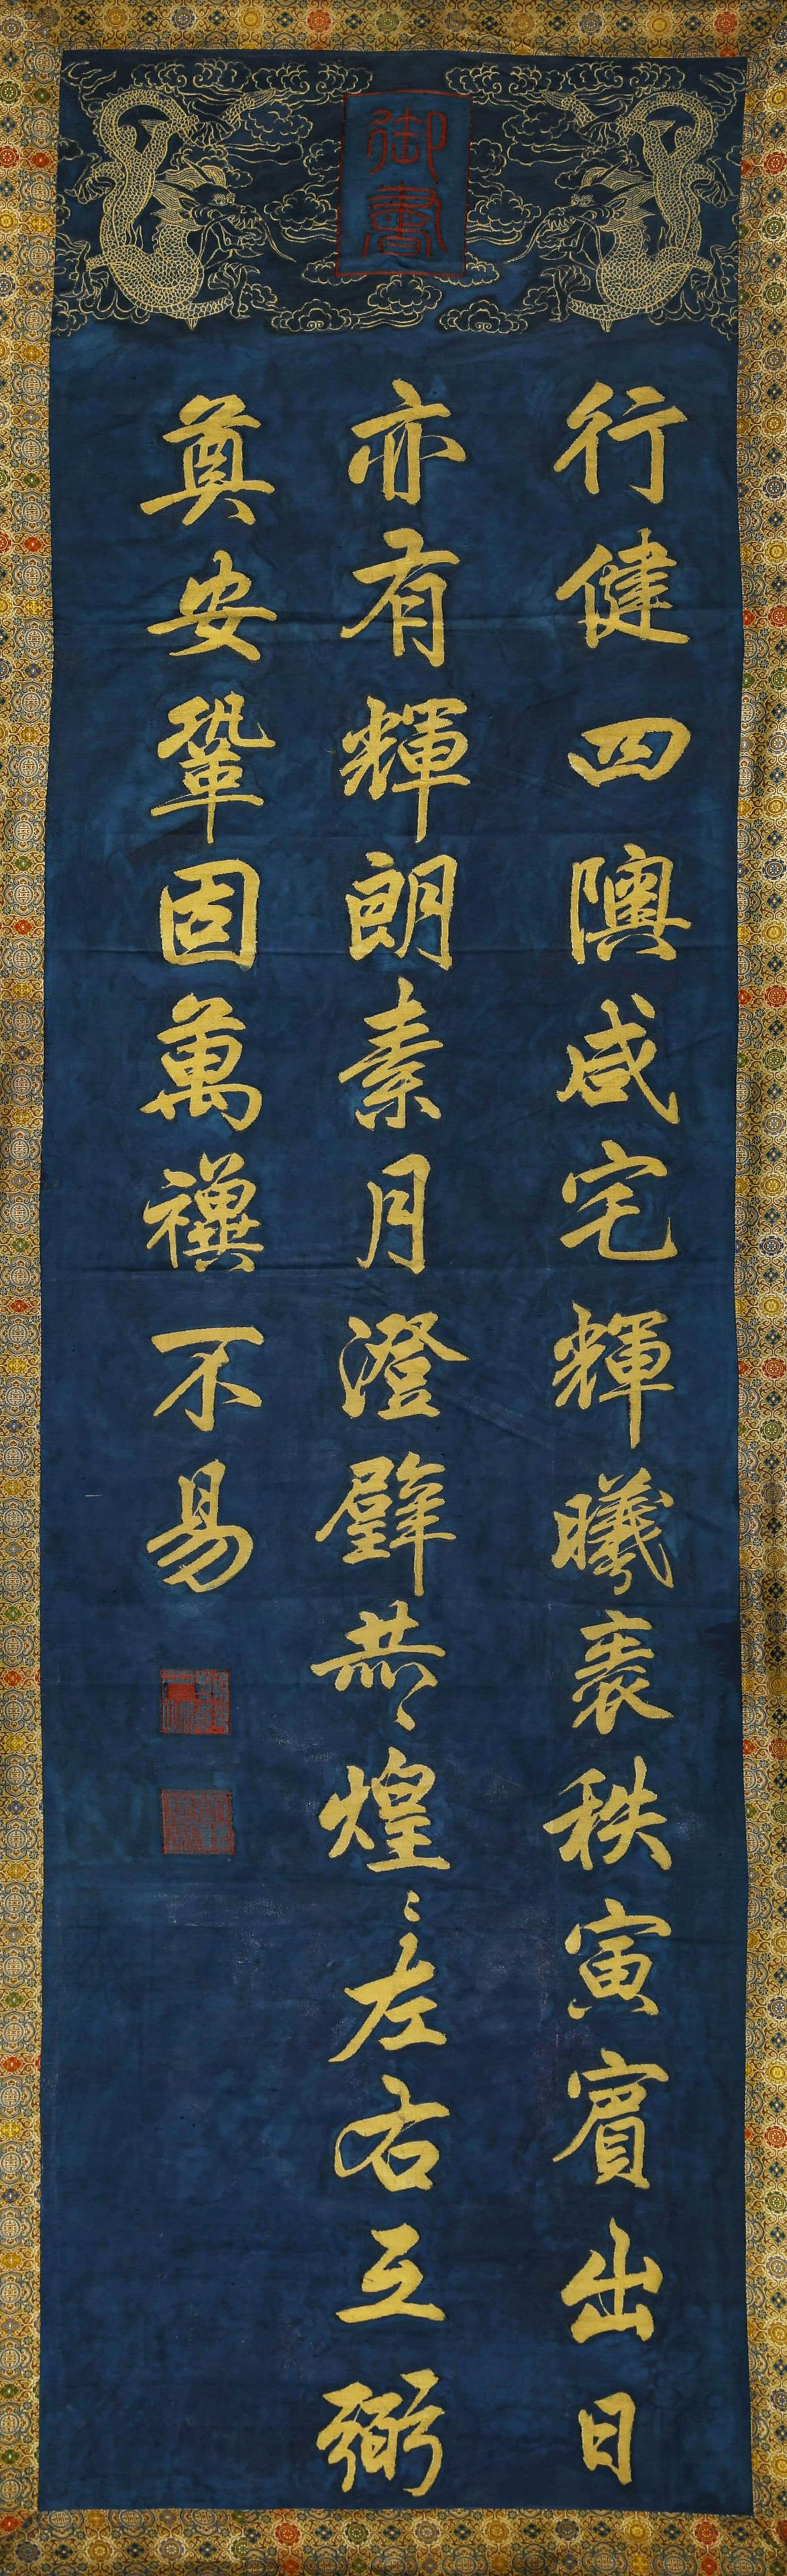 御書
行健四隩咸宅輝曦表秩寅賓出日
亦有輝朗素月澄璧恭〻煌〻左右互弼
奠安鞏固萬禩不易